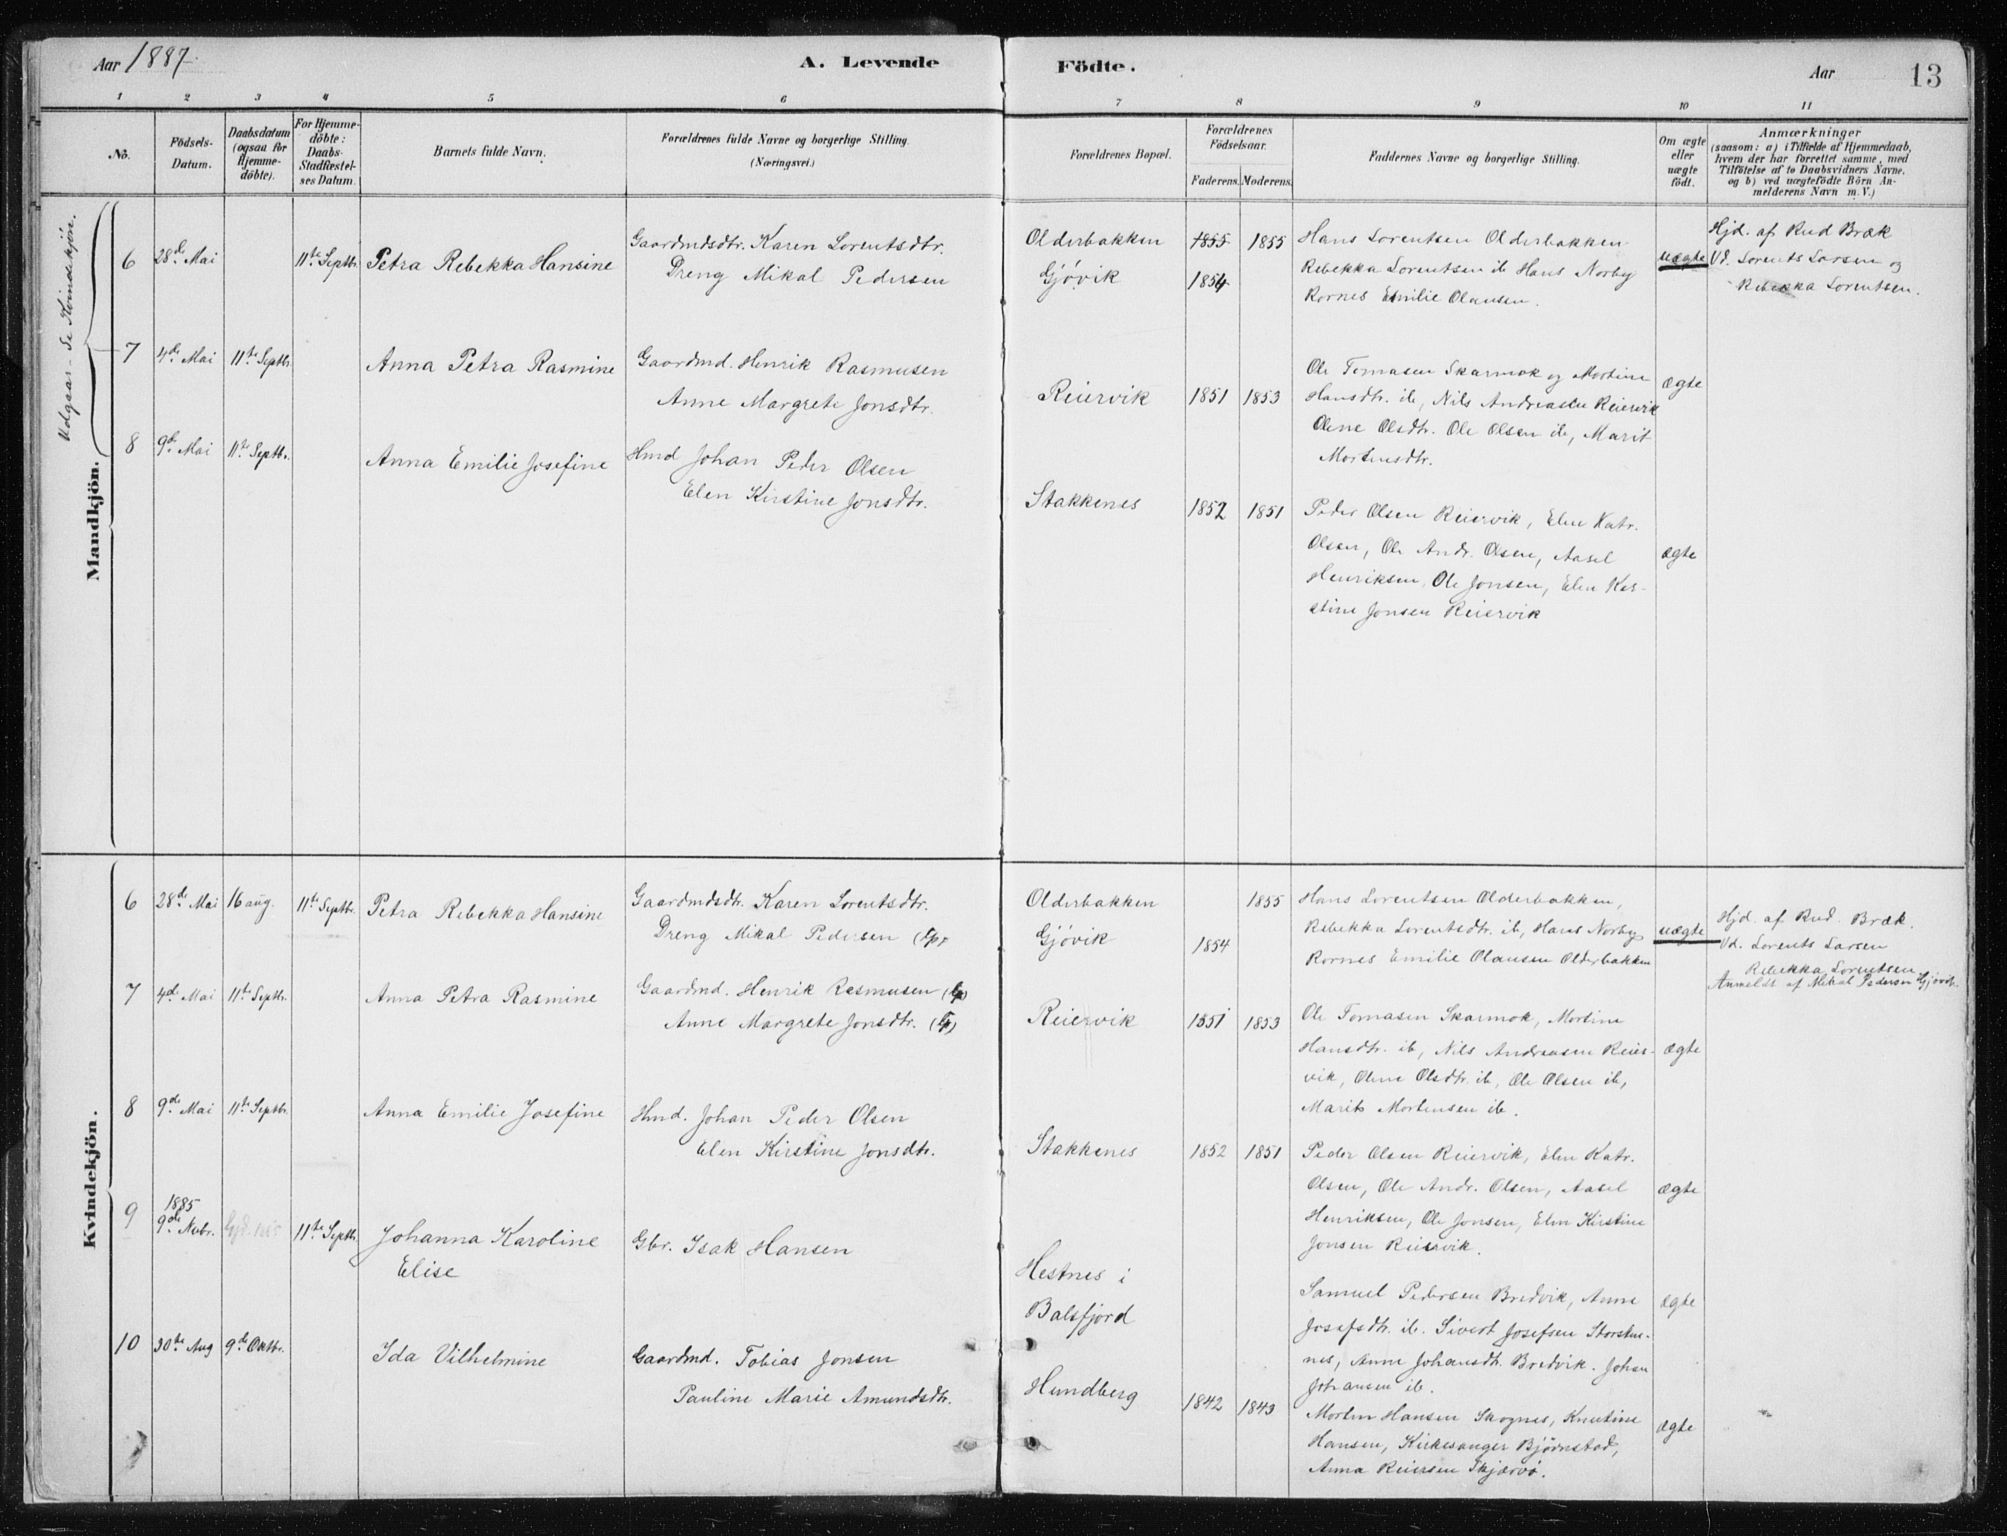 Aar 1887.
A. Levende Födte.
Aar
13
1 2 3 4 5 6 7 8 9 10 11
No.
Födsels-Datum.
Daabsdatum (ogsaa for Hjemme-döbte).
For Hjemme-döbte: Daabs-Stadfæstel-ses Datum.
Barnets fulde Navn.
Forældrenes fulde Navne og borgerlige Stilling (Næringsvei.)
Forældrenes Bopæl.
Forældrenes Födselsaar.
Faderens. Moderens.
Faddernes Navne og borgerlige Stilling.
Om ægte eller uægte födt.
Anmærkninger (saasom: a) i Tilfælde af Hjemmedaab, hvem der har forrettet samme, med Tilföielse af to Daabsvidners Navne, og b) ved uægtefödte Börn An-melderens Navn m. V.)
Mandkjön.
Udgaar - Se Kvindekjön.
6 28de Mai 11te Septbr. Petra Rebekka Hansine
Gaardmdsdtr. Karen Lorentsdtr.
Dreng Mikal Pedersen
Olderbakken 1855 1855
Gjövik 1854
Hans Lorentsen Olderbakken
Rebekka Lorentsen ib Hans Norby
Rornes Emilie Olausen.
uægte
Hjd. af Rud Bræk
Vd. Lorents Larsen og
Rebekka Lorentsen.
7 4de Mai 11te Septbr. Anna Petra Rasmine
Gaardmd. Henrik Rasmusen
Anne Margrete Jonsdtr.
Reiervik 1851 1853
Ole Tomasen Skarmok og Mortine
Hansdtr. ib, Nils Andreasen Reiervik
Oline Olsdtr. Ole Olsen ib, Marit
Mortensdtr.
ægte
8 9de Mai 11te Septbr. Anna Emilie Josefine
Hmd Johan Peder Olsen
Elen Kirstine Jonsdtr.
Stakkenes 1852 1851
Peder Olsen Reiervik, Elen Katr.
Olsen, Ole Andr. Olsen, Aasel
Henriksen, Ole Jonsen, Elen Kir-
stine Jonsen Reiervik
ægte
Kvindekjön.
6 28de Mai 16 aug. 11te Septbr. Petra Rebekka Hansine
Gaardmdsdtr. Karen Lorentsdtr.
Dreng Mikal Pedersen
Olderbakken 1855
Gjövik 1854
Hans Lorentsen Olderbakken,
Rebekka Lorentsdtr. ib, Hans Norby
Rornes Emilie Olausen Olderbakken
uægte
Hjd. af Rud. Bræk.
Vd. Lorents Larsen
Rebekka Lorentsen
Anmeldt af Mikal Pedersen Gjövik.
7 4de Mai 11te Septbr. Anna Petra Rasmine
Gaardmd. Henrik Rasmusen
Anne Margrete Jonsdtr.
Reiervik 1851 1853
Ole Tomasen Skarmok, Mortine
Hansdtr. ib, Nils Andreasen Reier-
vik, Oline Olsdtr. ib, Ole Olsen ib,
Marit Mortensen ib.
ægte
8 9de Mai 11te Septbr. Anna Emilie Josefine
Hmd. Johan Peder Olsen
Elen Kirstine Jonsdtr.
Stakkenes 1852 1851
Peder Olsen Reiervik, Elen Katr.
Olsen, Ole Andr. Olsen, Aasel
Henriksen, Ole Jonsen, Elen Kirstine
Jonsen Reiervik.
ægte
9 1885 9de Nvbr. 11te Septbr. Johanna Karoline
Elise
Gbr. Isak Hansen
Hestnes i
Balsfjord
Samuel Pedersen Bredvik, Anne
Josefsdtr. ib. Sivert Josefsen Storstei-
nes, Anne Johansdtr. Bredvik. Johan
Johansen ib.
ægte
10 30te Aug 9de Oktbr. Ida Vilhelmine
Gaardmd. Tobias Jonsen
Pauline Marie Amundsdtr.
Hundberg 1842 1843
Morten Hansen Skognes, Knutine
Hansen, Kirkesanger Bjørnstad,
Anna Reiersen Skjærvö.
ægte